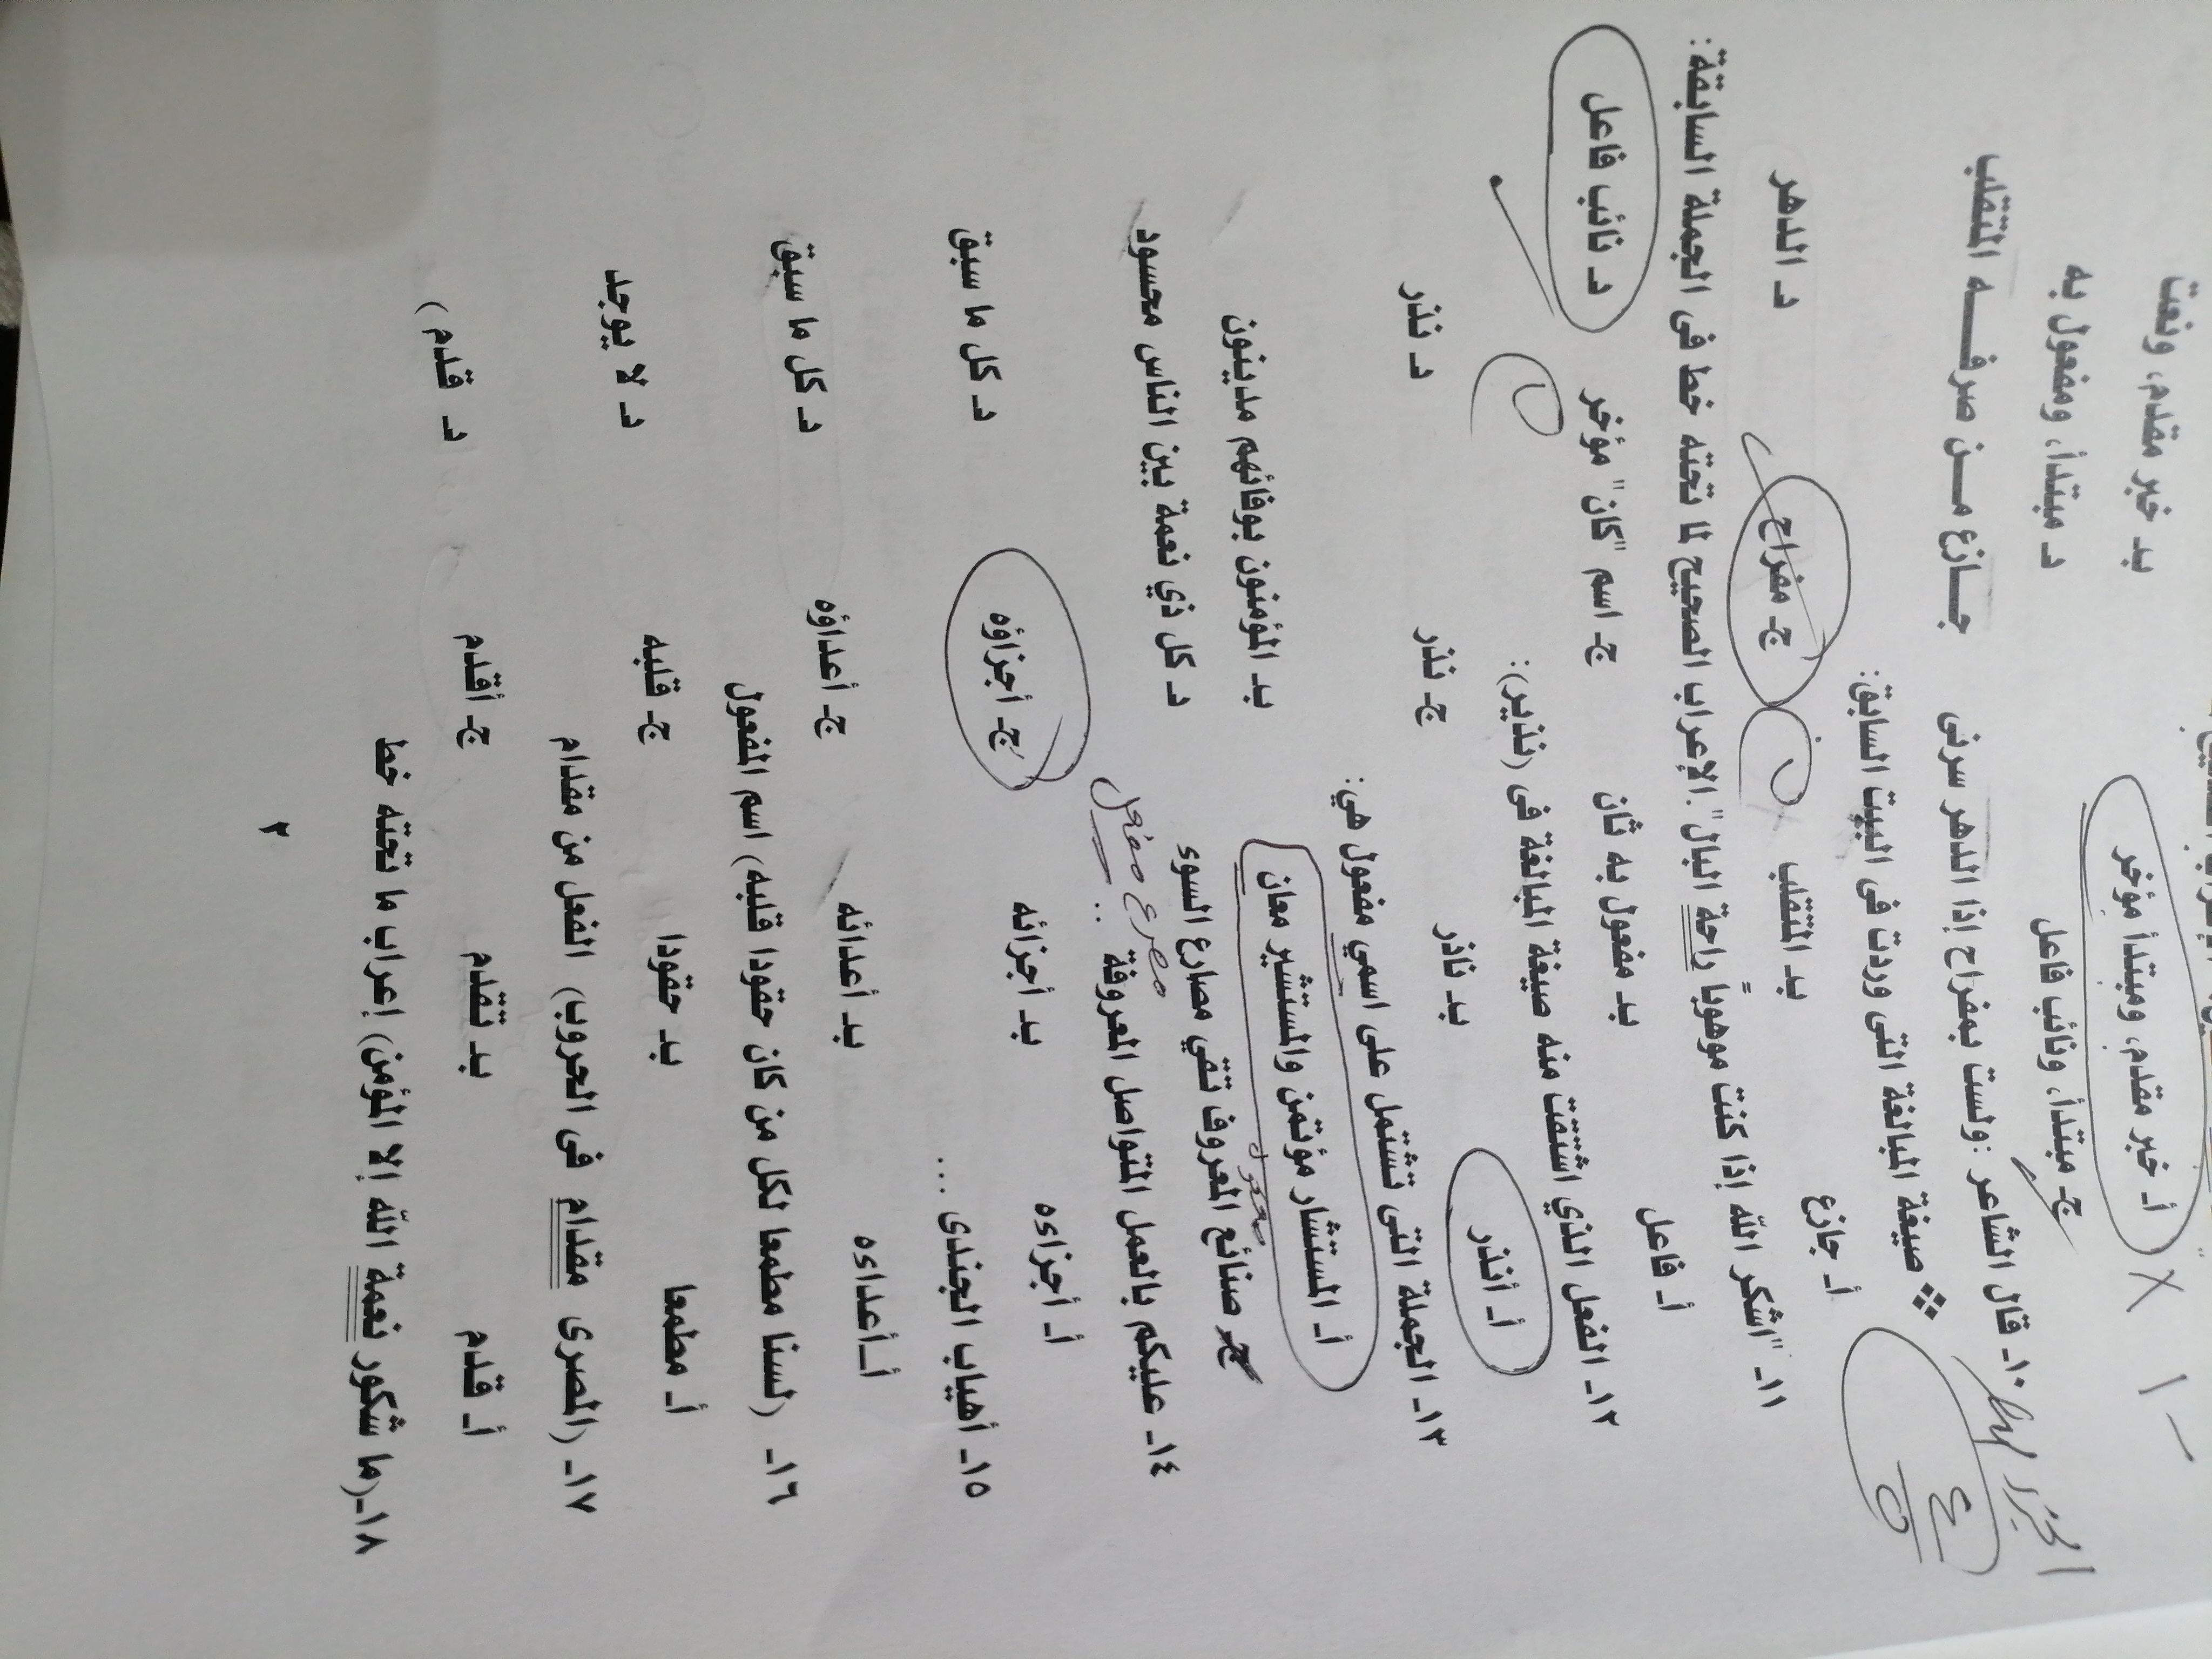 أـ خبر مقدم، ومبتدأ مؤخر بـ خبر مقدم، ونعت
جـ مبتدأ، ونائب فاعل د مبتدأ، ومفعول به
١٠ـ قال الشاعر :ولست بمفراح إذا الدهر سرنى جــازع مــن صرفــــه المتقلب
❖ صيغة المبالغة التى وردت فى البيت السابق:
أـ جازع بـ المتقلب جـ مفراح د ـ الدهر
١١ـ "اشكر الله إذا كنت موهوباً راحة البال".الإعراب الصحيح لما تحته خط فى الجملة السابقة:
أـ فاعل بـ مفعول به ثان جـ اسم "كان" مؤخر د ـ نائب فاعل
١٢ـ الفعل الذي اشتقت منه صيغة المبالغة فى (نذير):
أـ أنذر بـ ناذر جـ نذر د ـ نذر
١٣ـ الجملة التى تشتمل على اسمي مفعول هي:
أـ المستشار مؤتمن والمستشير معان بـ المؤمنون بوفائهم مدينون
جـ صنائع المعروف تقي مصارع السوء د كل ذي نعمة بين الناس محسود
مصرع مفعل
١٤ـ عليكم بالعمل المتواصل المعروفة ..
أـ أجزاءه بـ أجزائه جـ أجزاؤه د ـ كل ما سبق
١٥ـ أهياب الجندى ...
أـ أعداءه بـ أعدائه جـ أعداؤه د ـ كل ما سبق
١٦ـ (لسنا مطمعا لكل من كان حقودا قلبه) اسم المفعول
أـ مطمعا بـ حقودا جـ قلبه د ـ لا يوجد
١٧ـ (المصرى مقدام فى الحروب) الفعل من مقدام
أـ قدم بـ تقدم جـ أقدم د ـ قدم )
١٨ـ(ما شكور نعمة الله إلا المؤمن) إعراب ما تحته خط
٣